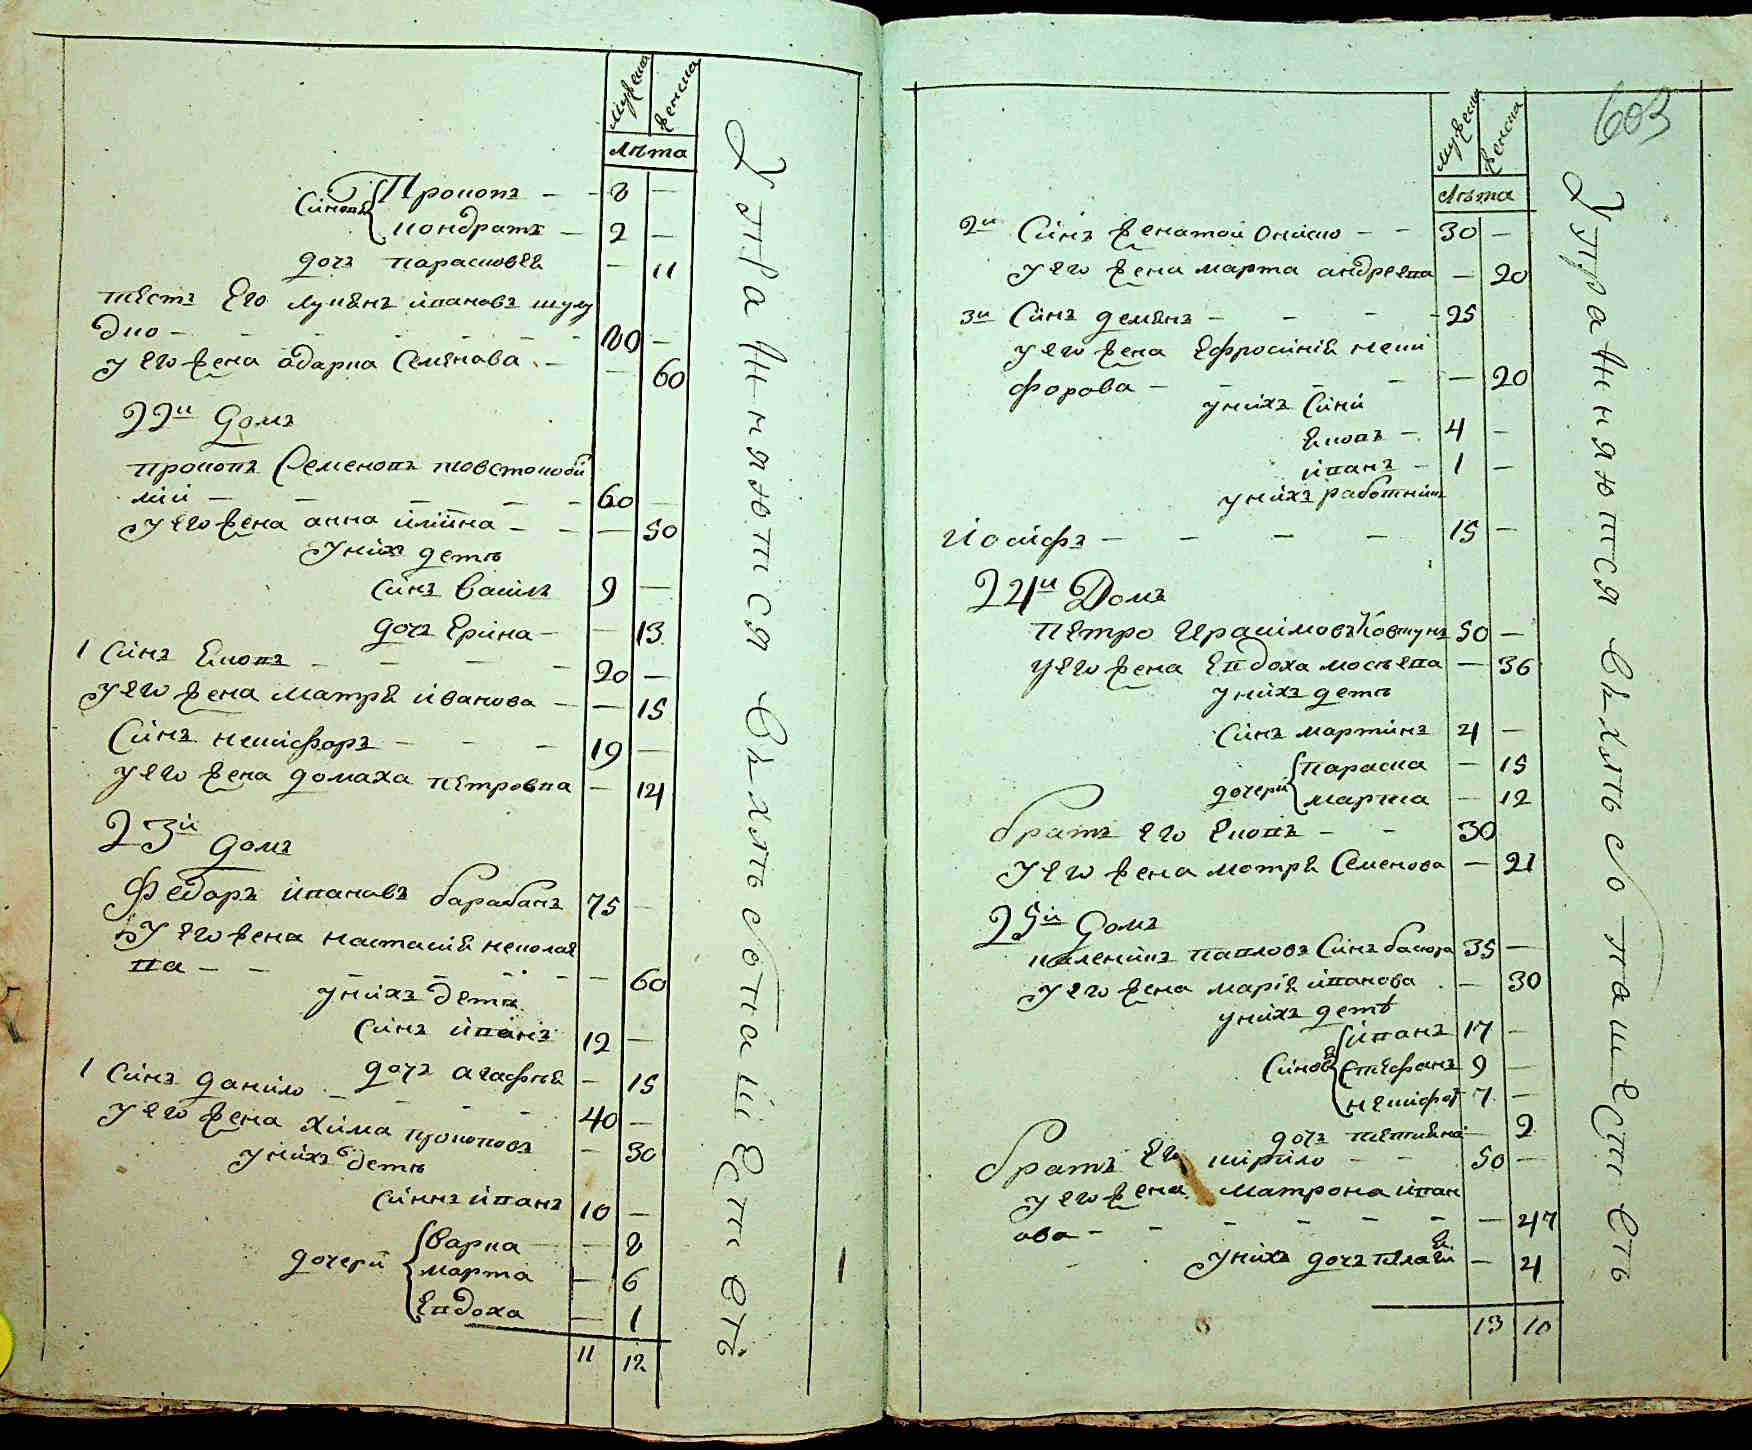 мужеска женска
лѣта
Синовя Прокопъ – – 8 –
кондратъ – 2 –
дочъ парасковея – 11
тестъ Его лукянъ ивановъ шулу
дко – – – – 80 –
у Его жена одарка Семенова – – 60
22й домъ
прокопъ Семеновъ товстоковой
лій – – – – 60 –
у Его жена анна илиина – – – 50
у нихъ дети
синъ василъ 9 –
дочъ Ерина – – 13
1 Синъ Екопъ – – – – 20 –
у Его жена матря иванова – – 15
Синъ никифоръ – – – 19 –
у Его жена домаха петровна – 14
23й домъ
Федоръ ивановъ барабанъ 75 –
у Его жена настасія николае
ва – – – – – – 60
у нихъ дети
Синъ иванъ 12 –
дочъ агафія – 15
1 Синъ данило – – – – 40 –
у Его жена хима прокопова – 30
у нихъ дети
Синъ иванъ 10 –
дочери варка – – 8
марта – 6
Евдоха – 1
11 12
У п р а жн н я ю т с я
603
мужеска женска
лѣта
2й Синъ женатой Ониско – – 30 –
у Его жена марта андреева – 20
3й Синъ демянъ – – – – 25
у Его жена Ефросинія ники
форова – – – – – 20
у нихъ Сини
Екопъ – 4 –
иванъ – 1 –
у нихъ работникъ
Иосифъ – – – – 15 –
24й Домъ
петро Герасимовъ Ковтунъ 50 –
у Его жена Евдоха мосѣева – 36
у нихъ дети
Синъ мартинъ 4 –
дочери параска – 15
марта – 12
братъ Его Екопъ – – 30
у Его жена мотря Семенова – 21
25й домъ
павловъ Синъ 35 –
у Его жена марія иванова – 30
у нихъ детѣ
Синовя иванъ 17 –
Стефанъ 9 –
никифоръ 7 –
дочъ татияна – 2
братъ Его кирило – – 50 –
у Его жена матрона иван
ова – – – – – – – 47
у нихъ дочъ пелагія – 4
13 10